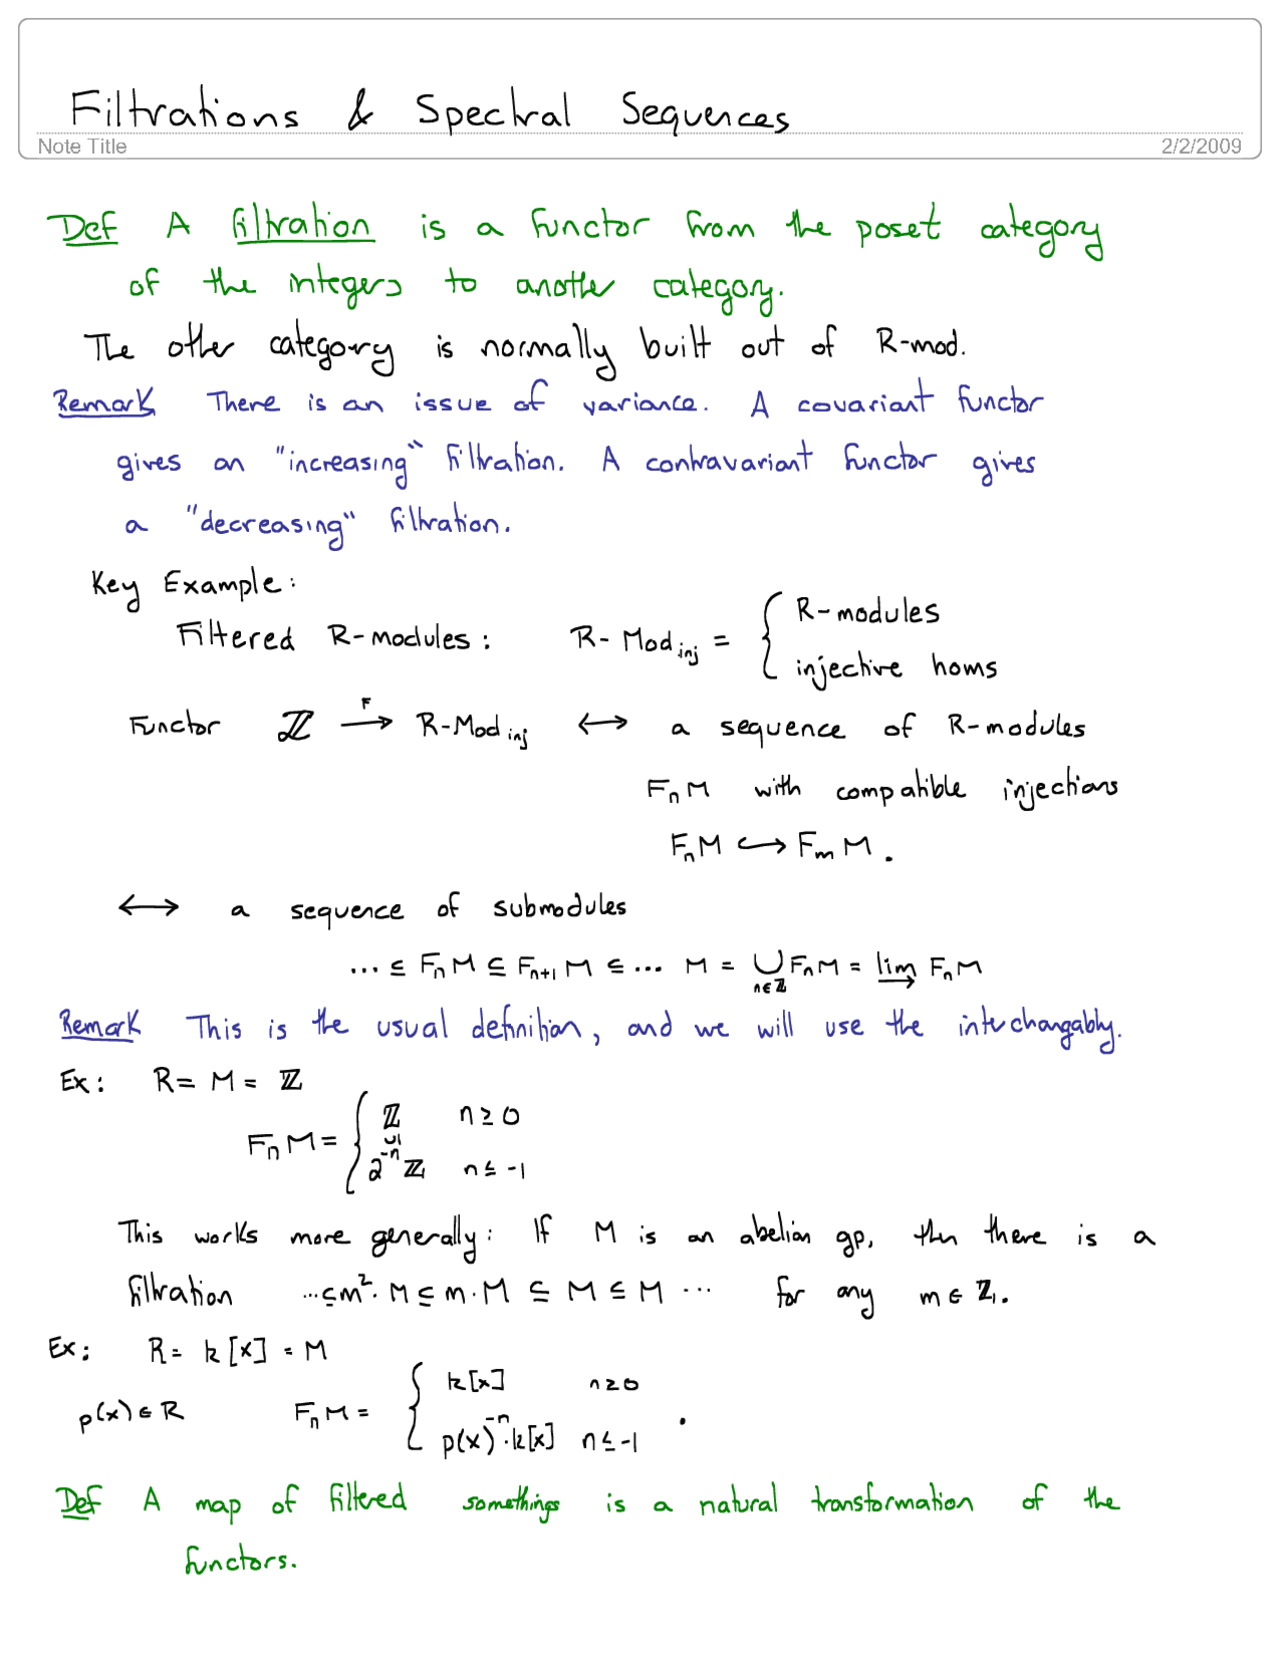 Filtrations & Spectral Sequences
Note Title 2/2/2009
Def A filtration is a functor from the poset category
of the integers to another category.
The other category is normally built out of R-mod.
Remark There is an issue of variance. A covariant functor
gives an "increasing" filtration. A contravariant functor gives
a "decreasing" filtration.
Key Example:
Filtered R-modules: R-Mod_inj = { R-modules
injective homs
Functor ℤ —F→ R-Mod_inj ⟷ a sequence of R-modules
F_n M with compatible injections
F_n M ↪ F_m M.
⟷ a sequence of submodules
... ⊆ F_n M ⊆ F_{n+1} M ⊆ ... M = ⋃_{n∈ℤ} F_n M = lim→ F_n M
Remark This is the usual definition, and we will use the interchangably.
Ex: R = M = ℤ
F_n M = { ℤ n ≥ 0
∪|
2^{-n} ℤ n ≤ -1
This works more generally: If M is an abelian gp, then there is a
filtration ... ⊆ m²·M ⊆ m·M ⊆ M ⊆ M ... for any m ∈ ℤ.
Ex: R = k[x] = M
p(x) ∈ R F_n M = { k[x] n ≥ 0
p(x)^{-n}·k[x] n ≤ -1 .
Def A map of filtered somethings is a natural transformation of the
functors.